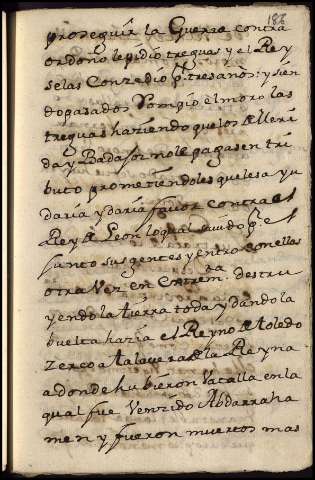 186
proseguir la Guerra contra
ordoño le pidio treguas y el Rey
selas Conzedio pr. tres anos: y sien
do pasados Rompio el moro las
treguas haziendo que los de Meri
da y Badajos no le pagasen tri
buto prometiendoles que les a yu
daria y daria favor contra el
Rey de Leon lo qual savido pr. el
junto sus gentes y entro con ellas
otra Vez en Extrem.da destru
yendo la tierra toda y dando la
buelta hazia el Reyno de toledo
Zerco a talavera de la Reyna
a donde hubieron Vatalla en la
qual fue Venzido Abdarraha
men y fueron muertos mas